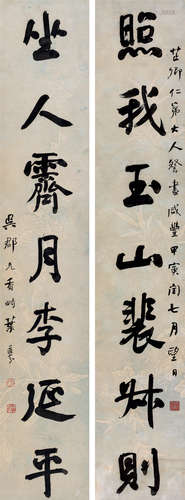 照我玉山裴叔則
坐人霽月李延平
芷卿仁弟大人詧書咸豐甲寅閏七月望日
吳郡九香
葉